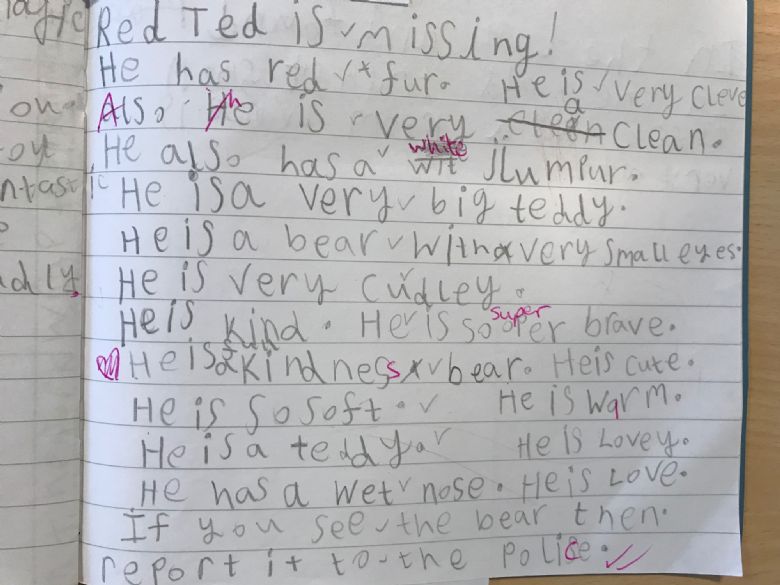 on
oy
ntastic
Red Ted is missing!
He has red fur. He is very cleve
Also He is very clean clean.
He also has a white wit jlumpur.
He is a very big teddy.
He is a bear with a very small eyes.
He is very cudley.
He is kind. He is so super oper brave.
He is a kindness bear. He is cute.
He is so soft. He is warm.
He is a teddy. He is Lovey.
He has a wet nose. He is Love.
If you see the bear then.
report it to the police.